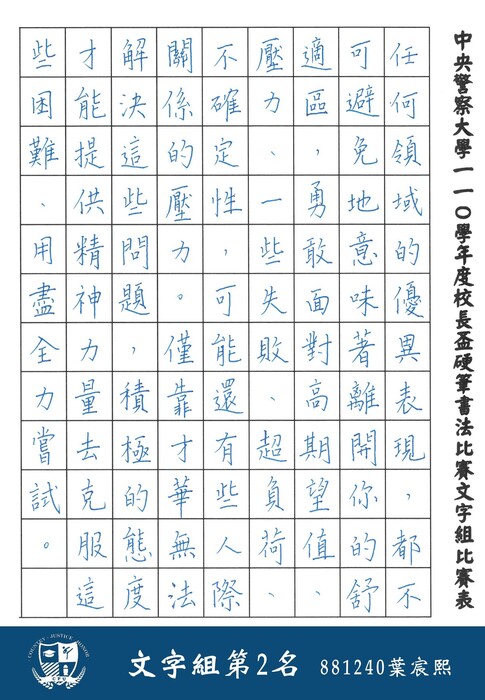 中央警察大學一一〇學年度校長盃硬筆書法比賽文字組比賽表
任何領域的優異表現，都不
可避免地意味著離開你的舒
適區，勇敢面對高期望值、
壓力、一些失敗、超負荷、
不確定性，可能還有些人際
關係的壓力。僅靠才華無法
解決這些問題，積極的態度
才能提供精神力量去克服這
些困難、用盡全力嘗試。
文字組第2名 881240葉宸熙